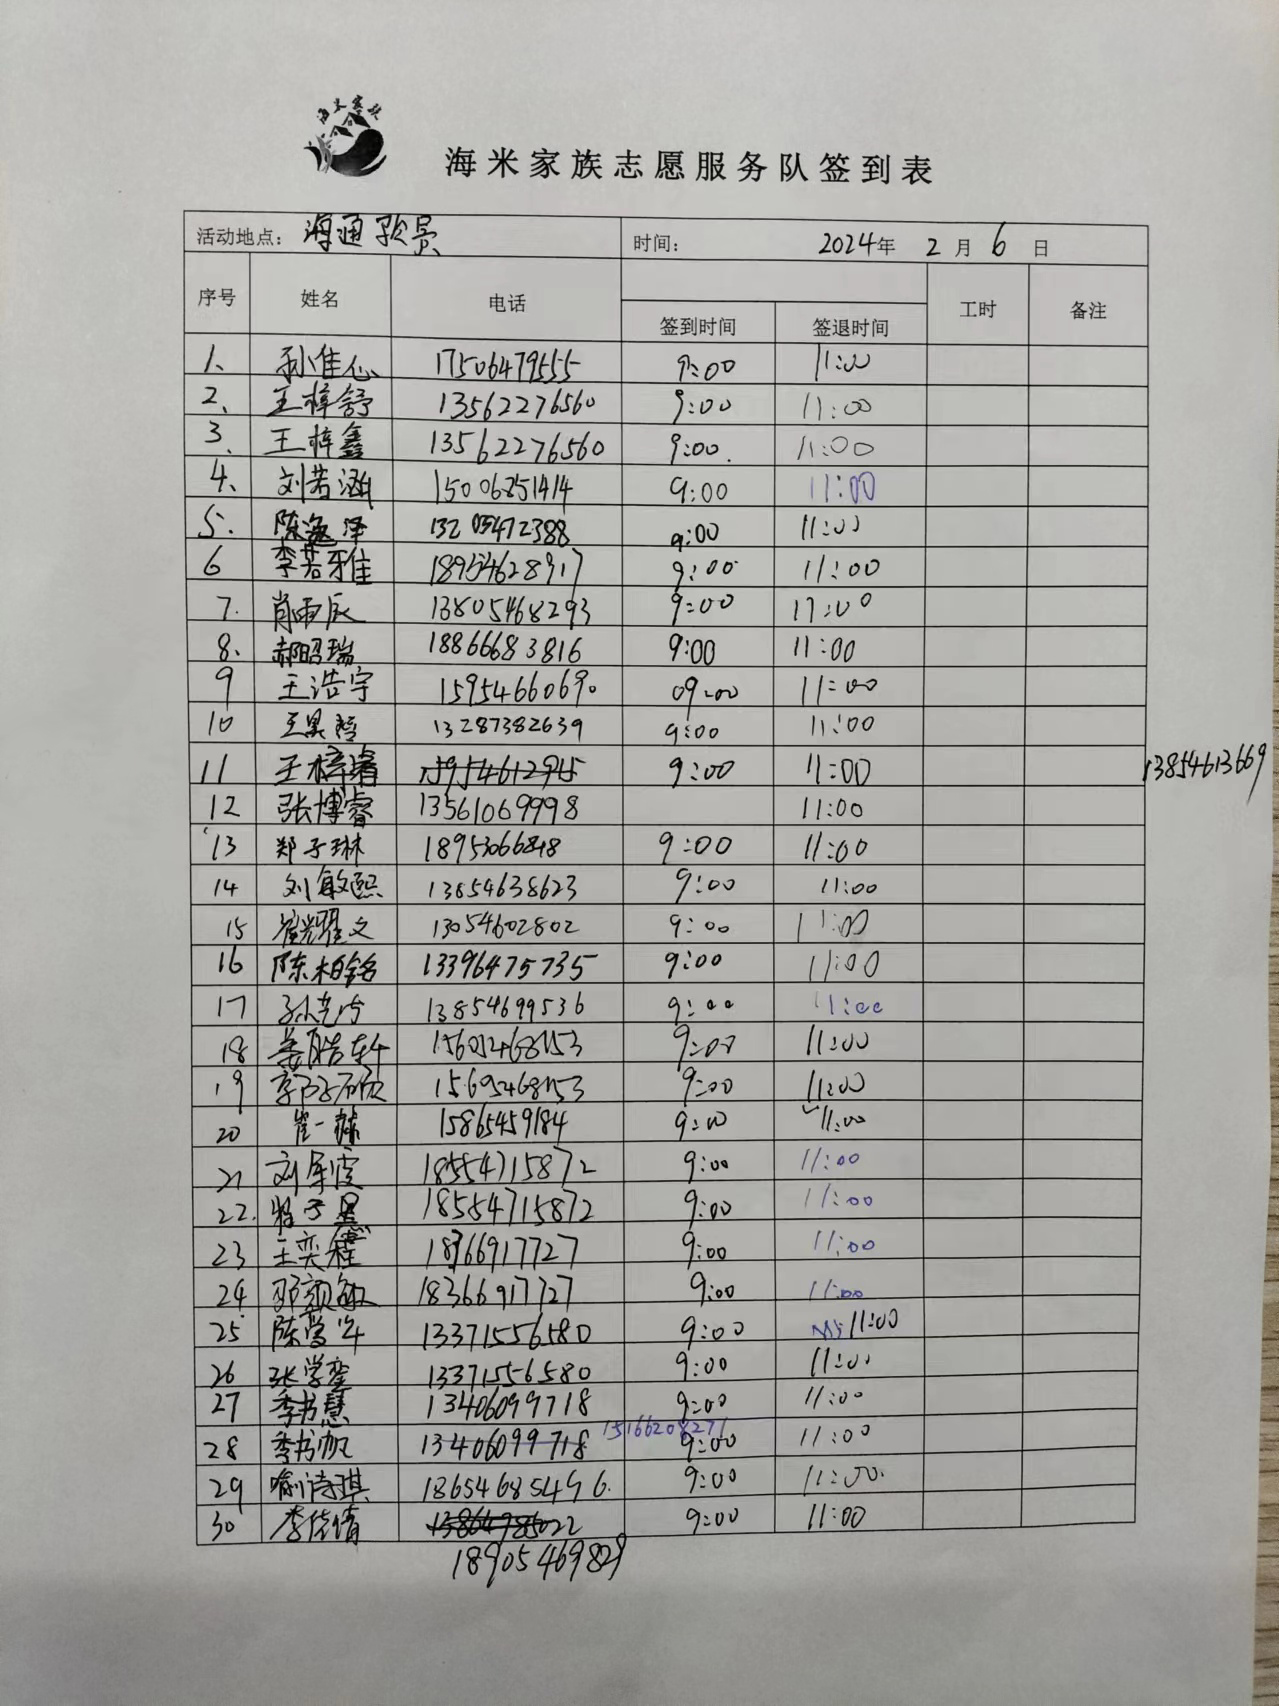 海米家族
海米家族志愿服务队签到表
活动地点： 海通 时间： 2024年 2 月 6 日
序号 姓名 电话 签到时间 签退时间 工时 备注
1、 孙佳心 17506479555 9:00 11:00
2、 王梓舒 13562276560 9:00 11:00
3、 王梓鑫 13562276560 9:00. 11:00
4、 刘若涵 15006251414 9:00 11:00
5. 陈逸泽 13205472388 9:00 11:00
6 李若雅 18954628917 9:00 11:00
7. 肖雨辰 13805468293 9:00 11:00
8. 郝昭瑞 18866683816 9:00 11:00
9 王浩宇 15954660690 09:00 11:00
10 王昊 13287382639 9:00 11:00
11 王梓睿 15954612945 9:00 11:00 13854613669
12 张博睿 13561069998 11:00
13 郑子琳 18953066848 9:00 11:00
14 刘敏熙 13854638623 9:00 11:00
15 崔耀文 13054602802 9:00 11:00
16 陈柏铭 13396475735 9:00 11:00
17 孙 13854699536 9:00 11:00
18 姜皓轩 9:00 11:00
19 15605468153 9:00 11:00
20 崔一赫 15865459184 9:00 11:00
21 刘军波 18554715872 9:00 11:00
22. 18554715872 9:00 11:00
23 王奕程 18366917727 9:00 11:00
24 邓颖敏 18366917727 9:00 11:00
25 陈 13371556580 9:00 11:00
26 张学奎 13371556580 9:00 11:00
27 季书慧 13406099718 9:00 11:00
28 季书帆 13406099718 15166208271 9:00 11:00
29 喻诗琪 18654685496. 9:00 11:00.
30 李佳倩 13864785022 9:00 11:00
18905469829